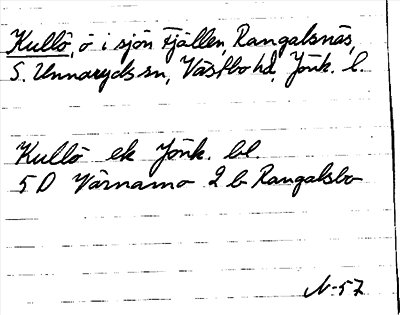 Kullö, ö i sjön Fjällen, Rangalsnäs,
S. Unnaryds sn, Västbo hd, Jönk. l.
Kullö ek Jönk. bl.
5 D Värnamo 2 b Rangalsbo
N-57